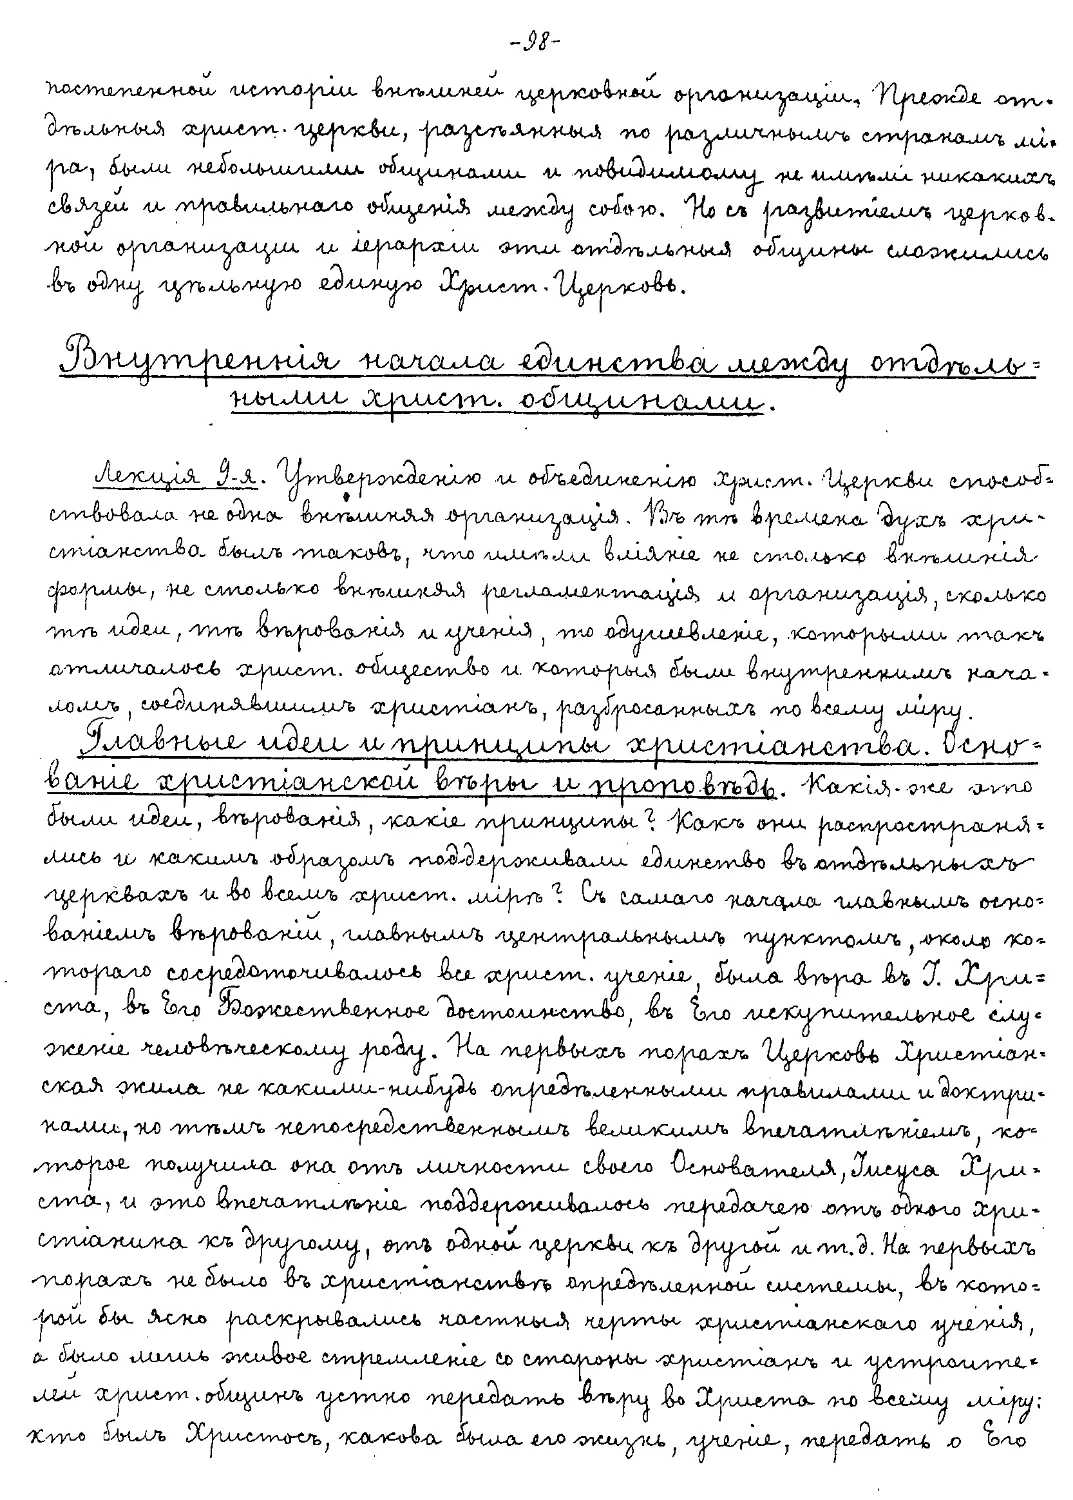 -98-
постепенной исторіи внѣшней церковной организаціи. Прежде от-
дѣльныя христ. церкви, разсѣянныя по различнымъ странамъ мі-
ра, были небольшими общинами и повидимому не имѣли никакихъ
связей и правильнаго общенія между собою. Но съ развитіемъ церков-
ной организаціи и іерархіи эти отдѣльныя общины сложились
въ одну цѣльную единую Христ. Церковь.
Внутреннія начала единства между отдѣль=
ными христ. общинами.
Лекція 9-я. Утвержденію и объединенію Христ. Церкви способ=
ствовала не одна внѣшняя организація. Въ тѣ времена духъ хри-
стіанства былъ таковъ, что имѣли вліяніе не столько внѣшнія
формы, не столько внѣшняя регламентація и организація, сколько
тѣ идеи, тѣ вѣрованія и ученія, то одушевленіе, которыми такъ
отличалось христ. общество и которыя были внутреннимъ нача-
ломъ, соединявшимъ христіанъ, разбросанныхъ по всему міру.
Главные идеи и принципы христіанства. Осно=
ваніе христіанской вѣры и проповѣдь. Какія-же это
были идеи, вѣрованія, какіе принципы? Какъ они распространя=
лись и какимъ образомъ поддерживали единство въ отдѣльныхъ
церквахъ и во всемъ христ. мірѣ? Съ самаго начала главнымъ осно=
ваніемъ вѣрованій, главнымъ центральнымъ пунктомъ, около ко=
тораго сосредоточивалось все христ. ученіе, была вѣра въ І. Хри=
ста, въ Его Божественное достоинство, въ Его искупительное слу=
женіе человѣческому роду. На первыхъ порахъ Церковь Христіан=
ская жила не какими-нибудь опредѣленными правилами и доктри=
нами, но тѣмъ непосредственнымъ великимъ впечатлѣніемъ, ко=
торое получила она отъ личности своего Основателя, Іисуса Хри=
ста, и это впечатлѣніе поддерживалось передачею отъ одного хри-
стіанина къ другому, отъ одной церкви къ другой и т.д. На первыхъ
порахъ не было въ христіанствѣ опредѣленной системы, въ кото=
рой бы ясно раскрывались частныя черты христіанскаго ученія,
а было лишь живое стремленіе со стороны христіанъ и устроите=
лей христ. общинъ устно передать вѣру во Христа по всему міру:
кто былъ Христосъ, какова была его жизнь, ученіе, передать о Его